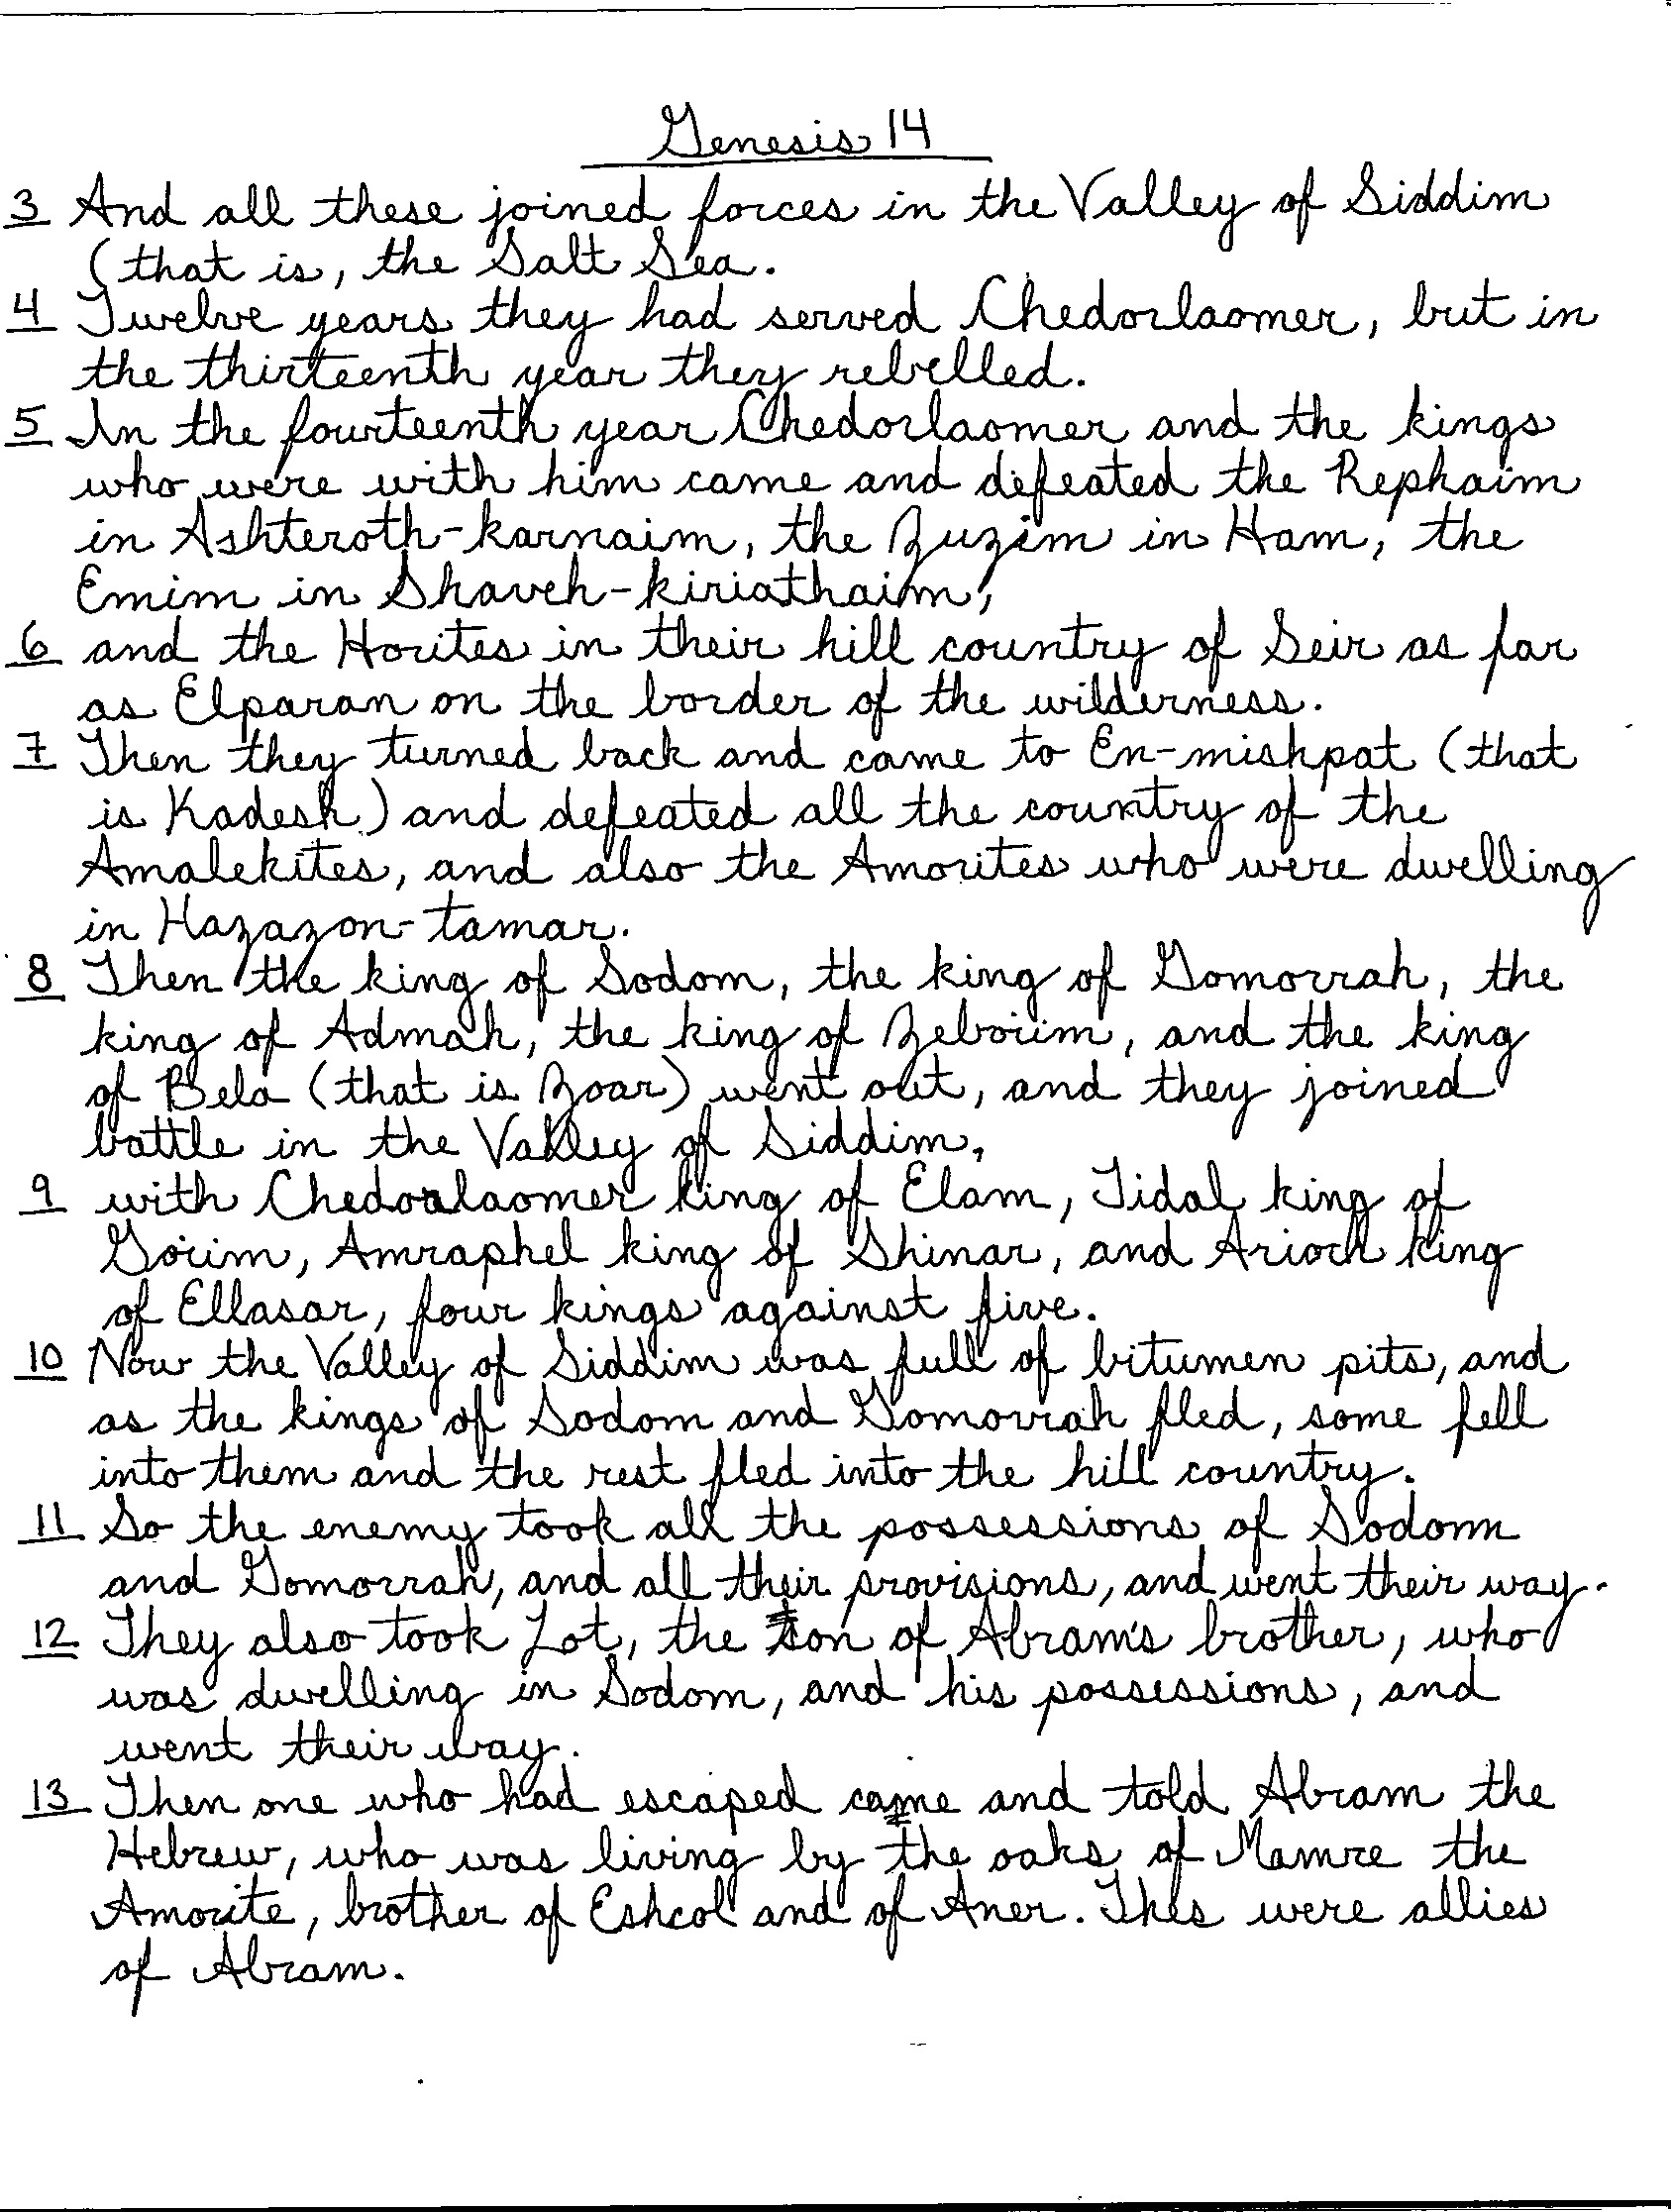 Genesis 14
3 And all these joined forces in the Valley of Siddim
(that is, the Salt Sea.
4 Twelve years they had served Chedorlaomer, but in
the thirteenth year they rebelled.
5 In the fourteenth year Chedorlaomer and the kings
who were with him came and defeated the Rephaim
in Ashteroth-karnaim, the Zuzim in Ham, the
Emim in Shaveh-kiriathaim,
6 and the Horites in their hill country of Seir as far
as Elparan on the border of the wilderness.
7 Then they turned back and came to En-mishpat (that
is Kadesh) and defeated all the country of the
Amalekites, and also the Amorites who were dwelling
in Hazazon-tamar.
8 Then the king of Sodom, the king of Gomorrah, the
king of Admah, the king of Zeboiim, and the king
of Bela (that is Zoar) went out, and they joined
battle in the Valley of Siddim,
9 with Chedorlaomer king of Elam, Tidal king of
Goiim, Amraphel king of Shinar, and Arioch king
of Ellasar, four kings against five.
10 Now the Valley of Siddim was full of bitumen pits, and
as the kings of Sodom and Gomorrah fled, some fell
into them and the rest fled into the hill country.
11 So the enemy took all the possessions of Sodom
and Gomorrah, and all their provisions, and went their way.
12 They also took Lot, the son of Abram's brother, who
was dwelling in Sodom, and his possessions, and
went their way.
13 Then one who had escaped came and told Abram the
Hebrew, who was living by the oaks of Mamre the
Amorite, brother of Eshcol and of Aner. Thes were allies
of Abram.